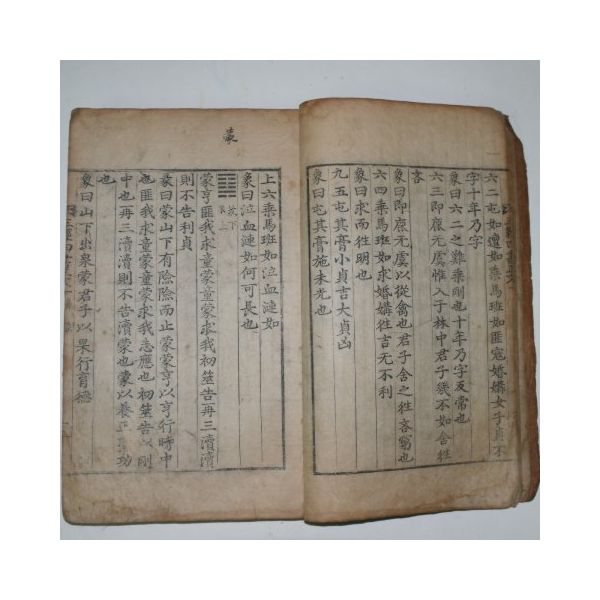 六二屯如邅如乘馬班如匪寇婚媾女子貞不
字十年乃字
象曰六二之難乘剛也十年乃字反常也
六三即鹿无虞惟入于林中君子幾不如舍徃
吝
象曰即鹿无虞以從禽也君子舍之徃吝窮也
六四乘馬班如求婚媾徃吉无不利
象曰求而徃明也
九五屯其膏小貞吉大貞凶
象曰屯其膏施未光也
蒙
上六乘馬班如泣血漣如
象曰泣血漣如何可長也
坎下
艮上
蒙亨匪我求童蒙童蒙求我初筮告再三瀆瀆
則不告利貞
彖曰蒙山下有險險而止蒙蒙亨以亨行時中
也匪我求童蒙童蒙求我志應也初筮告以剛
中也再三瀆瀆則不告瀆蒙也蒙以養正聖功
也
象曰山下出泉蒙君子以果行育德